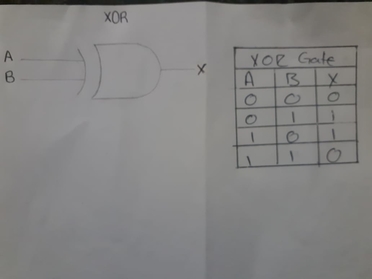 XOR
A
B
X
XOR Gate
A B X
0 0 0
0 1 1
1 0 1
1 1 0